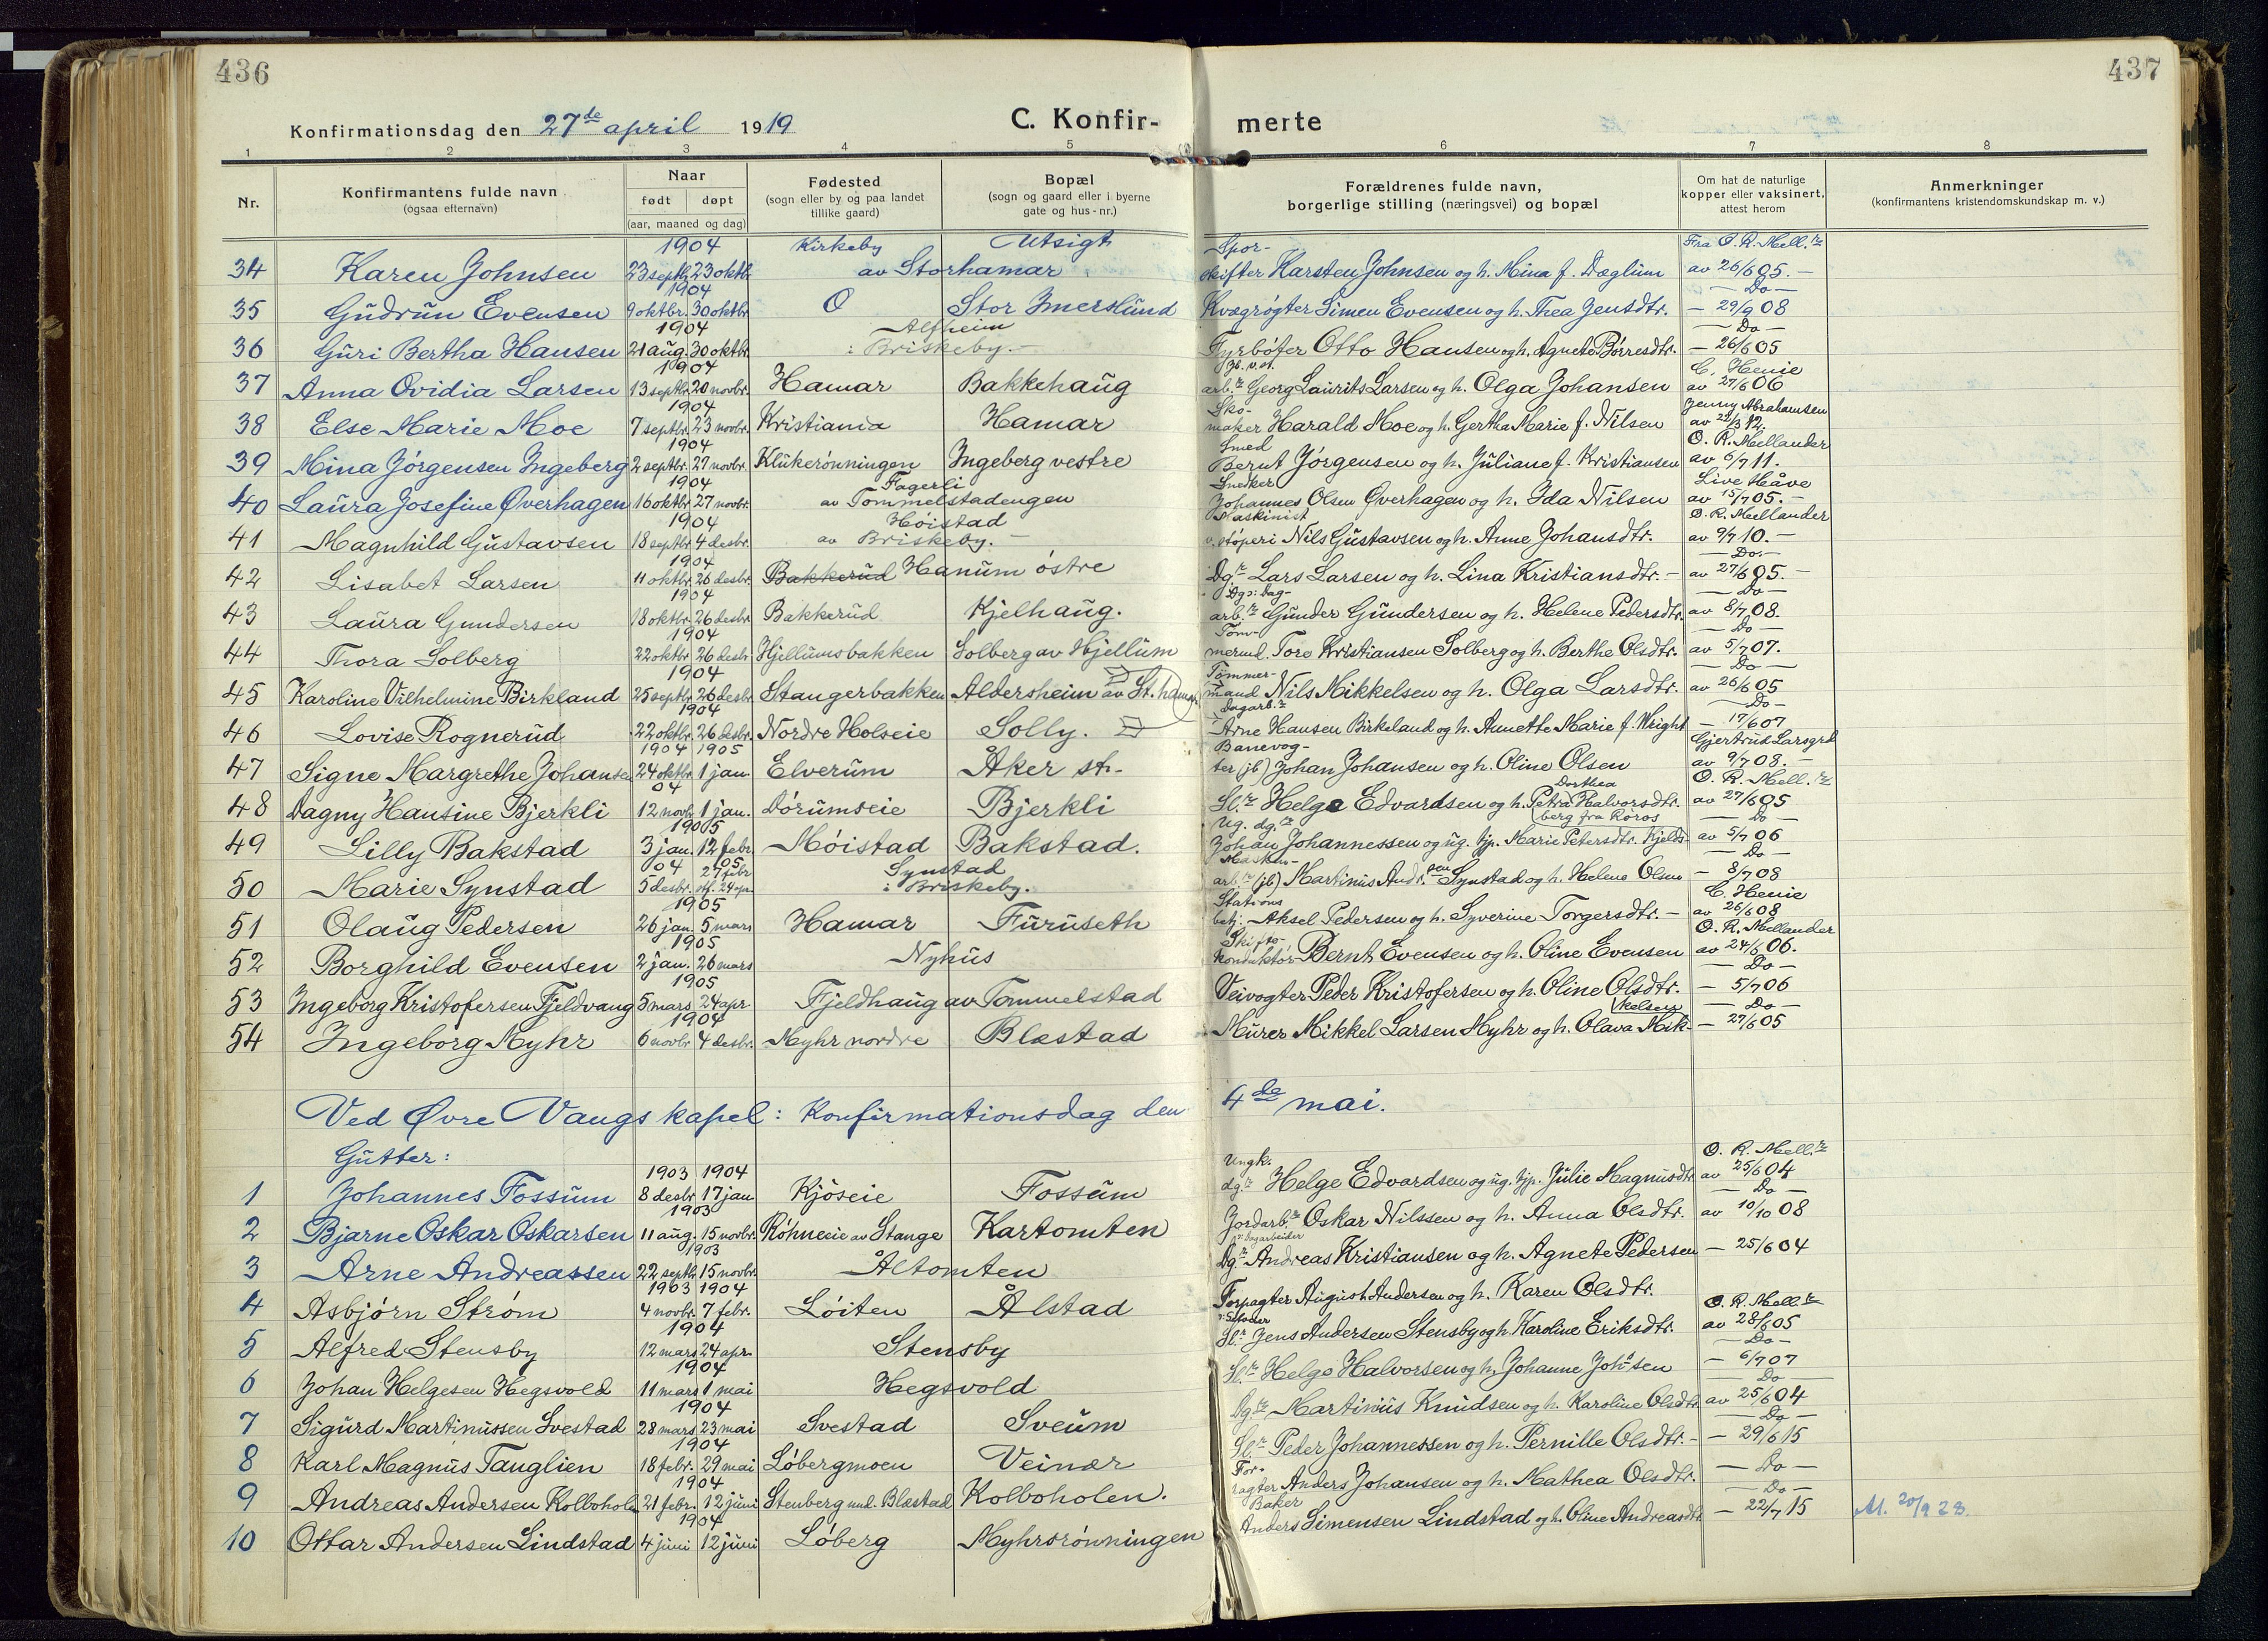 436
Konfirmationsdag den 27de april 1919
C. Konfir-
1 2 3 4 5
Nr.
Konfirmantens fulde navn
(ogsaa efternavn)
Naar
født døpt
(aar, maaned og dag)
Fødested
(sogn eller by og paa landet
tillike gaard)
Bopæl
(sogn og gaard eller i byerne
gate og hus-nr.)
1904 Kirkeby Utsigt
34 Karen Johnsen 23 septbr. 23 oktbr. av Storhamar
1904
35 Gudrun Evensen 9 oktbr. 30 oktbr. O Stor Imerslund
1904 Alfheim
36 Guri Bertha Hansen 21 aug. 30 oktbr. i Briskeby.-
1904
37 Anna Ovidia Larsen 13 septbr. 20 novbr. Hamar Bakkehaug
1904
38 Else Marie Moe 7 septbr. 23 novbr. Kristiania Hamar
1904
39 Mina Jörgensen Ingeberg 2 septbr. 27 novbr. Klukerönningen Ingeberg vestre
1904 Fagerli
40 Laura Josefine Øverhagen 16 oktbr. 27 novbr. av Tommelstadengen
1904 Höistad
41 Magnhild Gustavsen 18 septbr. 4 desbr. av Briskeby.-
1904
42 Lisabet Larsen 11 oktbr. 26 desbr. Bakkerud Hanum östre
1904
43 Laura Gundersen 18 oktbr. 26 desbr. Bakkerud Kjelhaug.
1904
44 Thora Solberg 22 oktbr. 26 desbr. Hjellumsbakken Solberg av Hjellum
1904
45 Karoline Vilhelmine Birkland 25 septbr. 26 desbr. Stangerbakken Aldersheim av St.hamar
1904
46 Lovise Rognerud 22 oktbr. 26 desbr. Nordre Holseie Solly.
1904 1905
47 Signe Margrethe Johansen 24 oktbr. 1 jan. Elverum Åker st.
04
48 Dagny Hansine Bjerkli 12 novbr. 1 jan. Dörumseie Bjerkli
1905
49 Lilly Bakstad 3 jan. 12 febr. Möistad Bakstad.
04 05 Synstad
50 Marie Synstad 5 desbr. i Briskeby.
1905
51 Olaug Pedersen 26 jan. 5 mars Hamar Furuseth
1905
52 Borghild Evensen 2 jan. 26 mars Nyhus
1905
53 Ingeborg Kristofersen Fjeldvang 5 mars 24 apr. Fjeldhaug av Tommelstad
1904
54 Ingeborg Myhr 6 novbr. 4 desbr. Myhr nordre Blæstad
Ved Øvre Vangs kapel: Konfirmationsdag den
Gutter:
1903 1904
1 Johannes Fossum 8 desbr. 17 jan Kjöseie Fossum
1903
2 Bjarne Oskar Oskarsen 11 aug. 15 novbr. Röhneeie av Stange Kartomten
1903
3 Arne Andreassen 22 septbr. 15 novbr. Åltomten
1903 1904
4 Asbjörn Ström 4 novbr. 7 febr. Löiten Ålstad
1904
5 Alfred Stensby 12 mars 24 apr. Stensby
1904
6 Johan Helgesen Hegsvold 11 mars 1 mai Hegsvold
1904
7 Sigurd Martinussen Svestad 28 mars 23 mai Svestad Sveum
1904
8 Karl Magnus Tanglien 18 febr. 29 mai Löbergmoen Veinær
1904
9 Andreas Andersen Kolboholen 21 febr. 12 juni Stenberg und. Blæstad Kolboholen.
1904
10 Ottar Andersen Lindstad 4 juni 12 juni Löberg Myhrsrönningen
437
merte
6 7 8
Forældrenes fulde navn,
borgerlige stilling (næringsvei) og bopæl
Om hat de naturlige
kopper eller vaksinert,
attest herom
Anmerkninger
(konfirmantens kristendomskundskap m. v.)
Spor- Fra O. R. Mell.re
skifter Karsten Johnsen og h. Mina f. Dæglum av 26/6 05.-
Do
Kvægrögter Simen Evensen og h. Thea Jensdtr. - 29/9 08
Do
Fyrböter Otto Hansen og h. Agnete Börresdtr. - 26/6 05
Jb. v. st. C. Henie
arb.r Georg Laurits Larsen og h. Olga Johansen av 27/6 06
Sko- Jenny Abrahamsen
maker Harald Moe og h. Gertha Marie f. Nilsen av 22/3 12.
Smed O. R. Mellander
Bernt Jörgensen og h. Juliane f. Kristiansen av 6/7 11.
Snedker Live Håve
Johannes Olsen Øverhagen og h. Ida Nilsen av 15/7 05.-
Maskinist O. R. Mellander
v. støperi Nils Gustavsen og h. Anne Johansdtr. av 9/7 10.-
Do.-
Dg.r Lars Larsen og h. Lina Kristiansdtr.- av 27/6 05.-
Dg: dag- Do
arb.r Gunder Gundersen og h. Helene Pedersdtr. av 8/7 08.
Töm- Do
mermd. Tore Kristiansen Solberg og h. Berthe Olsdtr. av 5/7 07.
Tömmer- Do
mand Nils Mikkelsen og h. Olga Larsdtr. av 26/6 05
Dagarb.r Do
Arne Hansen Birkeland og h. Annette Marie f. Wright - 17/6 07
Banevog- Gjertrud Larsgrd
ter (jb) Johan Johansen og h. Oline Olsen av 9/7 08.-
Dorthea O. R. Mell.re
Sl.r Helge Edvardsen og h. Petra Halvorsdtr. av 27/6 05
Ug. dg.r berg fra Röros Do
Johan Johannessen og ug. tjp. Marie Petersdtr. Kjelds- av 5/7 06
Maskin- Do
arb.r (jb) Martinus Andr.sen Synstad og h. Helene Olsen - 8/7 08
Stations C. Henie
betj. Aksel Pedersen og h. Syverine Torgersdtr.- av 26/6 08
Skifte- O. R. Mellander
konduktör Bernt Evensen og h. Oline Evensen av 24/6 06.
Do
Veivogter Peder Kristofersen og h. Oline Olsdtr. - 5/7 06
kelsen Do
Murer Mikkel Larsen Myhr og h. Olava Mik- - 27/6 05
4de mai.
Ungk. O. R. Mell.re
dg.r Helge Edvardsen og ug. tjp. Julie Magnusdtr. av 25/6 04
Do
Jordarb.r Oskar Nilssen og h. Anna Olsdtr. av 10/10 08
Dg.r Andreas Kristiansen og h. Agnete Pedersen - 25/6 04
Forpagter August Andersen og h. Karen Olsdtr.
Selveier O. R. Mell.re
Sl.r Jens Andersen Stensby og h. Karoline Eriksdtr. av 28/6 05
Do
Sl.r Helge Halvorsen og h. Johanne Joh.sen - 6/7 07
Do
Dg.r Martinius Knudsen og h. Karoline Olsdtr. av 25/6 04
Do
Sl.r Peder Johannessen og h. Pernille Olsdtr.- - 29/6 15
For- Do
pagter Anders Johansen og h. Mathea Olsdtr.
Baker Do
Anders Simensen Lindstad og h. Oline Andreasdtr. - 22/7 15 At. 20/9 28.